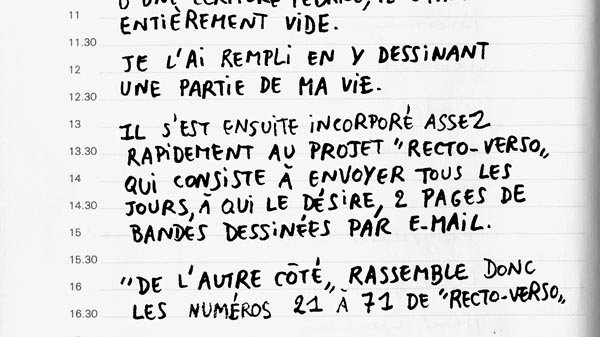 11 ENTIÈREMENT VIDE.
11.30
JE L'AI REMPLI EN Y DESSINANT
12
UNE PARTIE DE MA VIE.
12.30
13 IL S'EST ENSUITE INCORPORÉ ASSEZ
13.30 RAPIDEMENT AU PROJET "RECTO-VERSO„
14 QUI CONSISTE À ENVOYER TOUS LES
14.30 JOURS, À QUI LE DÉSIRE, 2 PAGES DE
15 BANDES DESSINÉES PAR E-MAIL.
15.30
16 "DE L'AUTRE CÔTÉ„ RASSEMBLE DONC
16.30 LES NUMÉROS 21 À 71 DE "RECTO-VERSO„